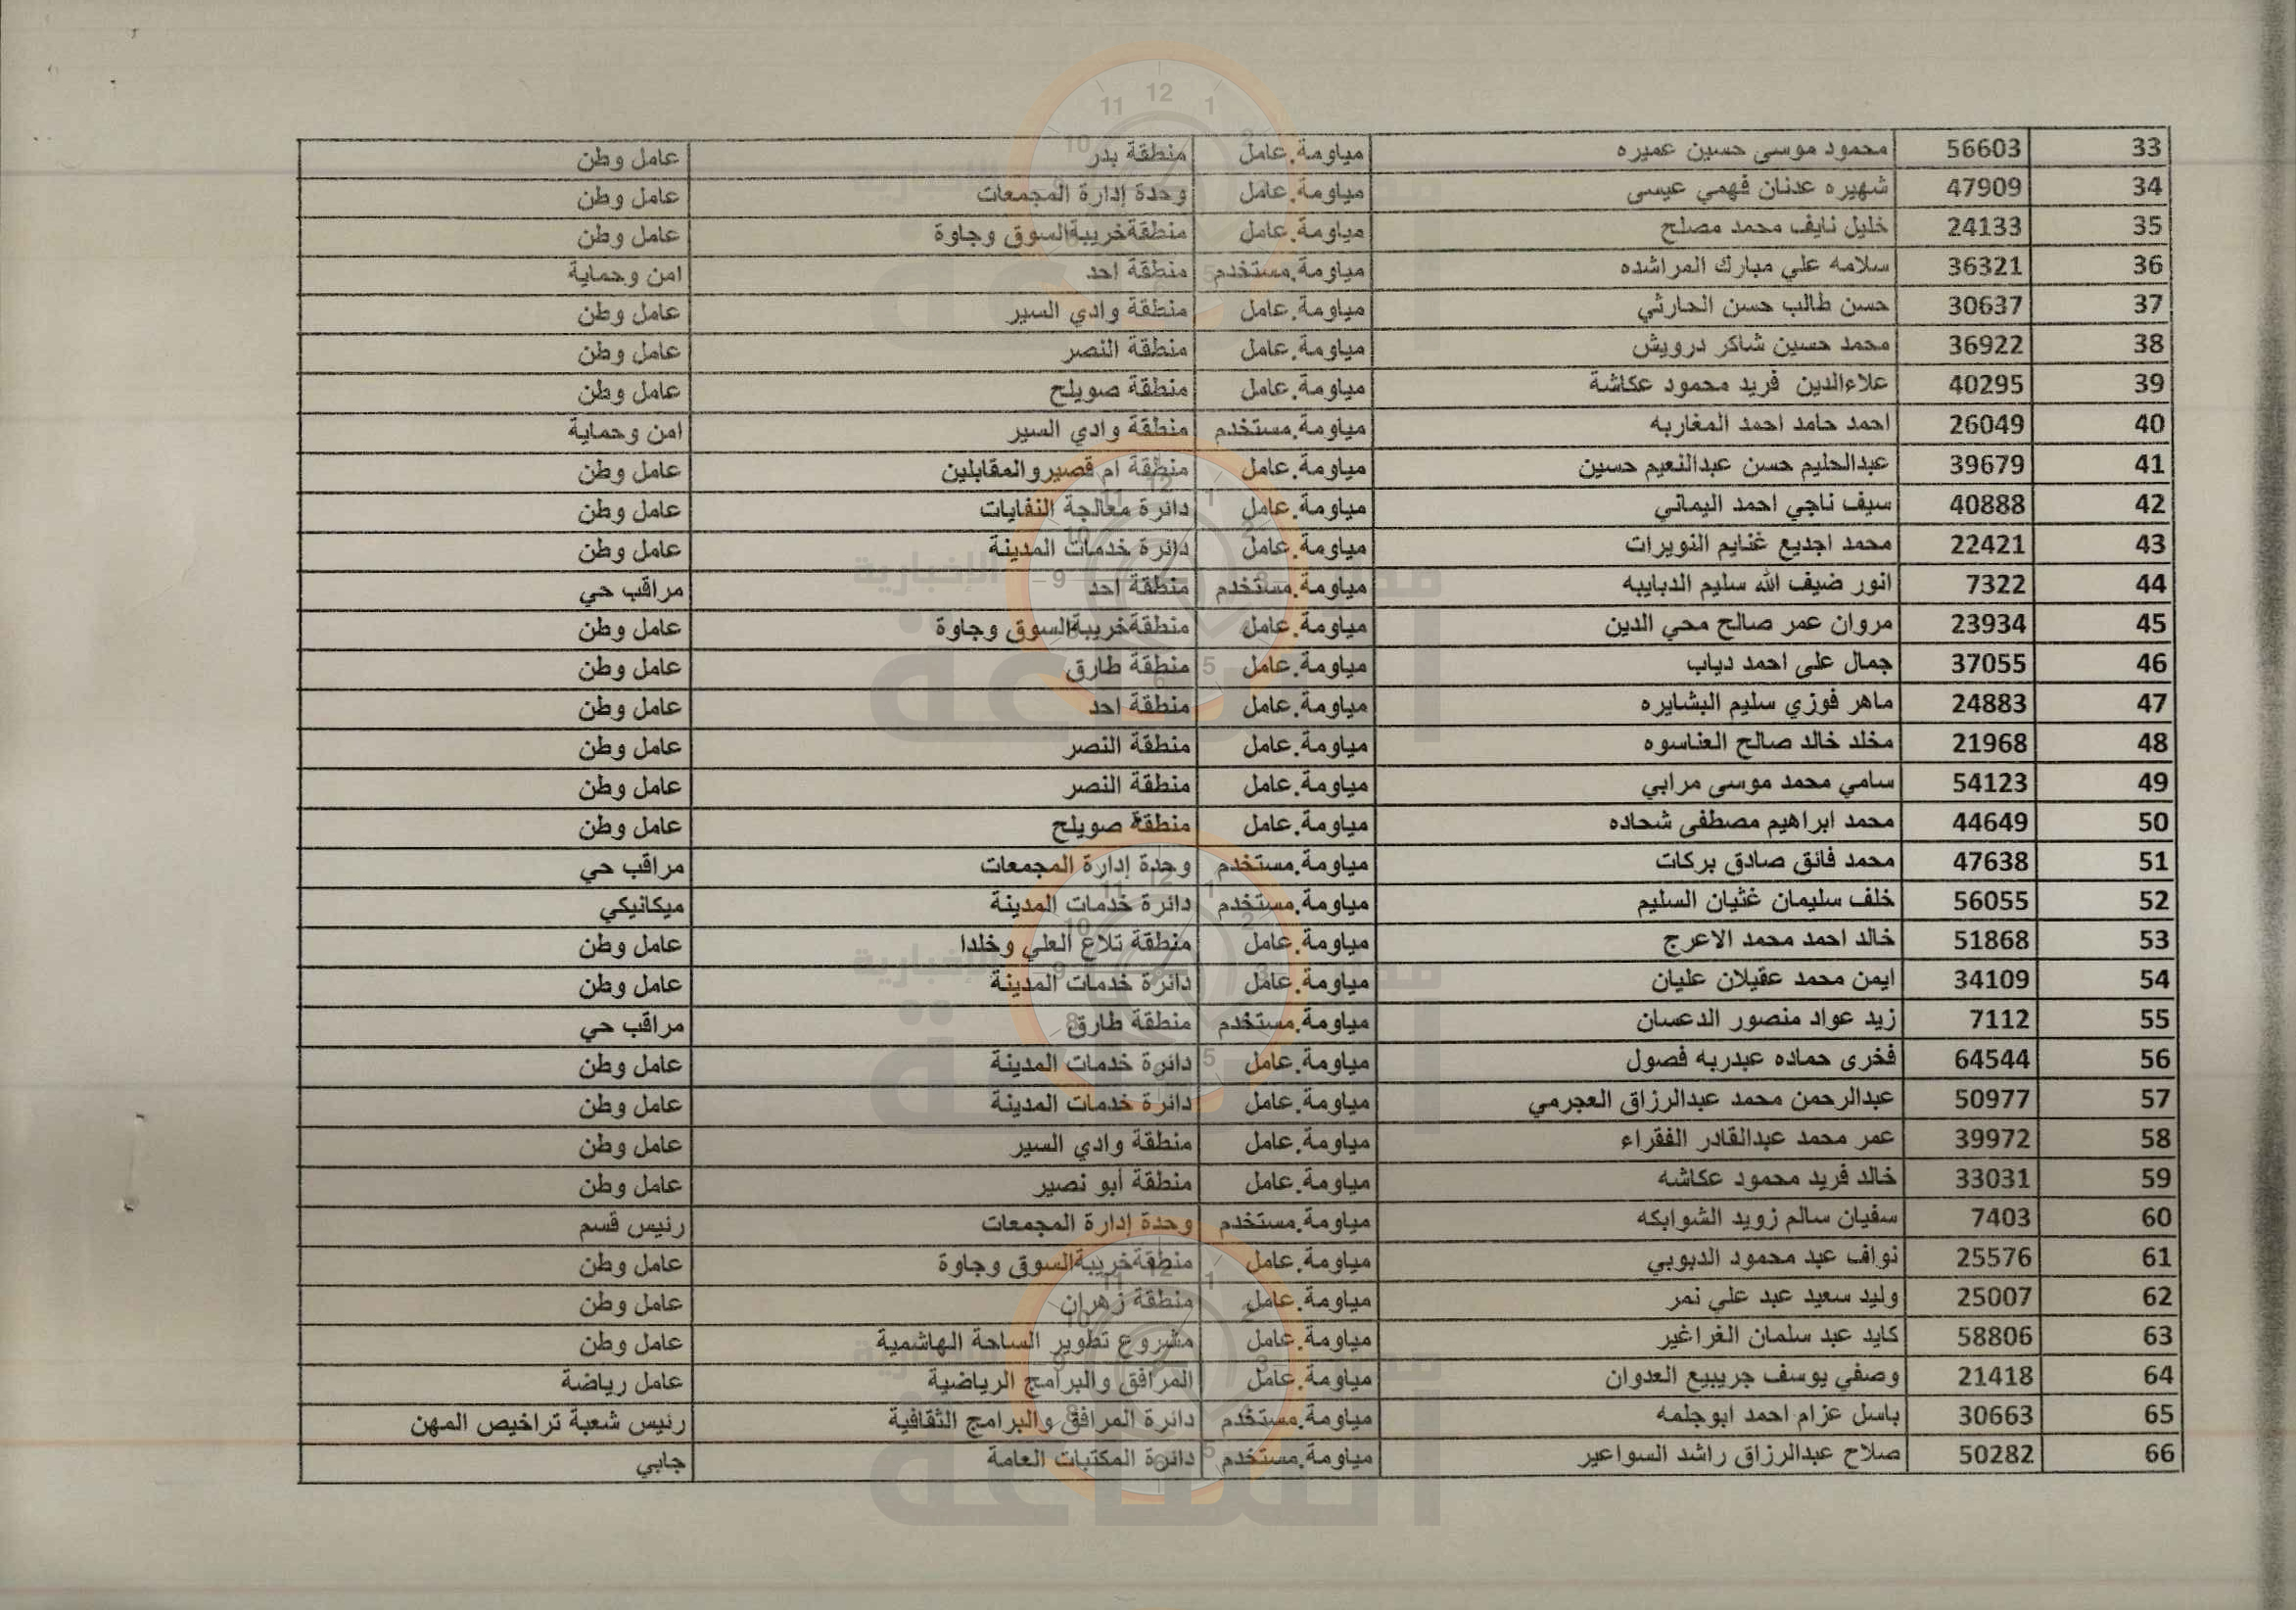 33 56603 محمود موسى حسين عميره مياومة.عامل منطقة بدر عامل وطن
34 47909 شهيره عدنان فهمي عيسى مياومة.عامل وحدة إدارة المجمعات عامل وطن
35 24133 خليل نايف محمد مصلح مياومة.عامل منطقةخريبةالسوق وجاوة عامل وطن
36 36321 سلامه علي مبارك المراشده مياومة.مستخدم منطقة احد امن وحماية
37 30637 حسن طالب حسن الحارثي مياومة.عامل منطقة وادي السير عامل وطن
38 36922 محمد حسين شاكر درويش مياومة.عامل منطقة النصر عامل وطن
39 40295 علاءالدين فريد محمود عكاشة مياومة.عامل منطقة صويلح عامل وطن
40 26049 احمد حامد احمد المغاربه مياومة.مستخدم منطقة وادي السير امن وحماية
41 39679 عبدالحليم حسن عبدالنعيم حسين مياومة.عامل منطقة ام قصيروالمقابلين عامل وطن
42 40888 سيف ناجي احمد اليماني مياومة.عامل دائرة معالجة النفايات عامل وطن
43 22421 محمد اجديع غنايم النويرات مياومة.عامل دائرة خدمات المدينة عامل وطن
44 7322 انور ضيف الله سليم الدبايبه مياومة.مستخدم منطقة احد مراقب حي
45 23934 مروان عمر صالح محي الدين مياومة.عامل منطقةخريبةالسوق وجاوة عامل وطن
46 37055 جمال على احمد دياب مياومة.عامل منطقة طارق عامل وطن
47 24883 ماهر فوزي سليم البشايره مياومة.عامل منطقة احد عامل وطن
48 21968 مخلد خالد صالح العناسوه مياومة.عامل منطقة النصر عامل وطن
49 54123 سامي محمد موسى مرابي مياومة.عامل منطقة النصر عامل وطن
50 44649 محمد ابراهيم مصطفى شحاده مياومة.عامل منطقة صويلح عامل وطن
51 47638 محمد فائق صادق بركات مياومة.مستخدم وحدة إدارة المجمعات مراقب حي
52 56055 خلف سليمان غثيان السليم مياومة.مستخدم دائرة خدمات المدينة ميكانيكي
53 51868 خالد احمد محمد الاعرج مياومة.عامل منطقة تلاع العلي وخلدا عامل وطن
54 34109 ايمن محمد عقيلان عليان مياومة.عامل دائرة خدمات المدينة عامل وطن
55 7112 زيد عواد منصور الدعسان مياومة.مستخدم منطقة طارق مراقب حي
56 64544 فخرى حماده عبدربه فصول مياومة.عامل دائرة خدمات المدينة عامل وطن
57 50977 عبدالرحمن محمد عبدالرزاق العجرمي مياومة.عامل دائرة خدمات المدينة عامل وطن
58 39972 عمر محمد عبدالقادر الفقراء مياومة.عامل منطقة وادي السير عامل وطن
59 33031 خالد فريد محمود عكاشه مياومة.عامل منطقة أبو نصير عامل وطن
60 7403 سفيان سالم زويد الشوابكه مياومة.مستخدم وحدة إدارة المجمعات رئيس قسم
61 25576 نواف عبد محمود الدبوبي مياومة.عامل منطقةخريبةالسوق وجاوة عامل وطن
62 25007 وليد سعيد عبد علي نمر مياومة.عامل منطقة زهران عامل وطن
63 58806 كايد عبد سلمان الغراغير مياومة.عامل مشروع تطوير الساحة الهاشمية عامل وطن
64 21418 وصفي يوسف جريبيع العدوان مياومة.عامل المرافق والبرامج الرياضية عامل رياضة
65 30663 باسل عزام احمد ابوجلمه مياومة.مستخدم دائرة المرافق والبرامج الثقافية رئيس شعبة تراخيص المهن
66 50282 صلاح عبدالرزاق راشد السواعير مياومة.مستخدم دائرة المكتبات العامة جابي